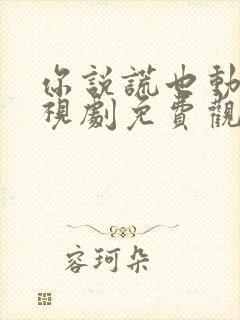 你說謊也動
視劇免費觀
容珂朵